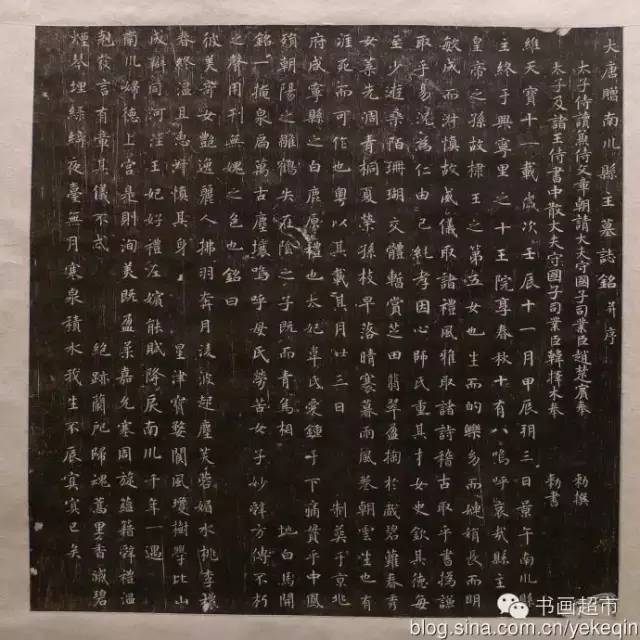 大唐贈南川縣主墓誌銘 并序
太子侍讀兼侍文章朝請大夫守國子司業臣趙楚賓奉 敕撰
太子及諸王侍書中散大夫守國子司業臣韓擇木奉 敕書
維天寶十一載歲次壬辰十一月甲辰朔三日景午南川縣
主終于興寧里之十王院享春秋十有八嗚呼哀哉縣主
皇帝之孫故棣王之第五女也生而的皪 而婕稍長而明
敏成而淑慎故威儀取諸禮風雅取諸詩稽古取乎書撝謙
取乎易況爲仁由己純孝因心師氏重其才女史欽其德每
至少遊桑陌珊瑚交體暫賞芝田翡翠盈掬於戲碧蘿春秀
女 先凋青桐夏榮孫枝早落晴褰暮雨風卷朝雲生也有
涯死而可作也粵以其載其月廿三日 制葬于京兆
府咸寧縣之白鹿原禮也太妃韋氏愛鍾于下痛貫乎中鳳
殞朝陽之雛鶴失在陰之子既而青烏相 地白馬開
銘一掩泉扃萬古塵壤嗚呼母氏勞苦女子 方傳不朽
之聲用刊無媿之色也銘曰
彼美帝女艷逸麗人拂羽奔月淩波起塵芙蓉媚水桃李穠
春終溫且惠淑慎其身 星津寶婺閬風瓊樹學比山
成辯同河注王妃好禮左嬪能賦降戾南川千年一遇
南川婦德上宮是則洵美既盈柔嘉允塞周旋蘊藉辭禮溫
剋發言有章其儀不忒 絕跡蘭阤歸魂蒿里香滅碧
煙琴埋綠綺夜臺無月寒泉積水我生不辰寘寘已矣
书画超市
blog.sina.com.cn/yekeqin